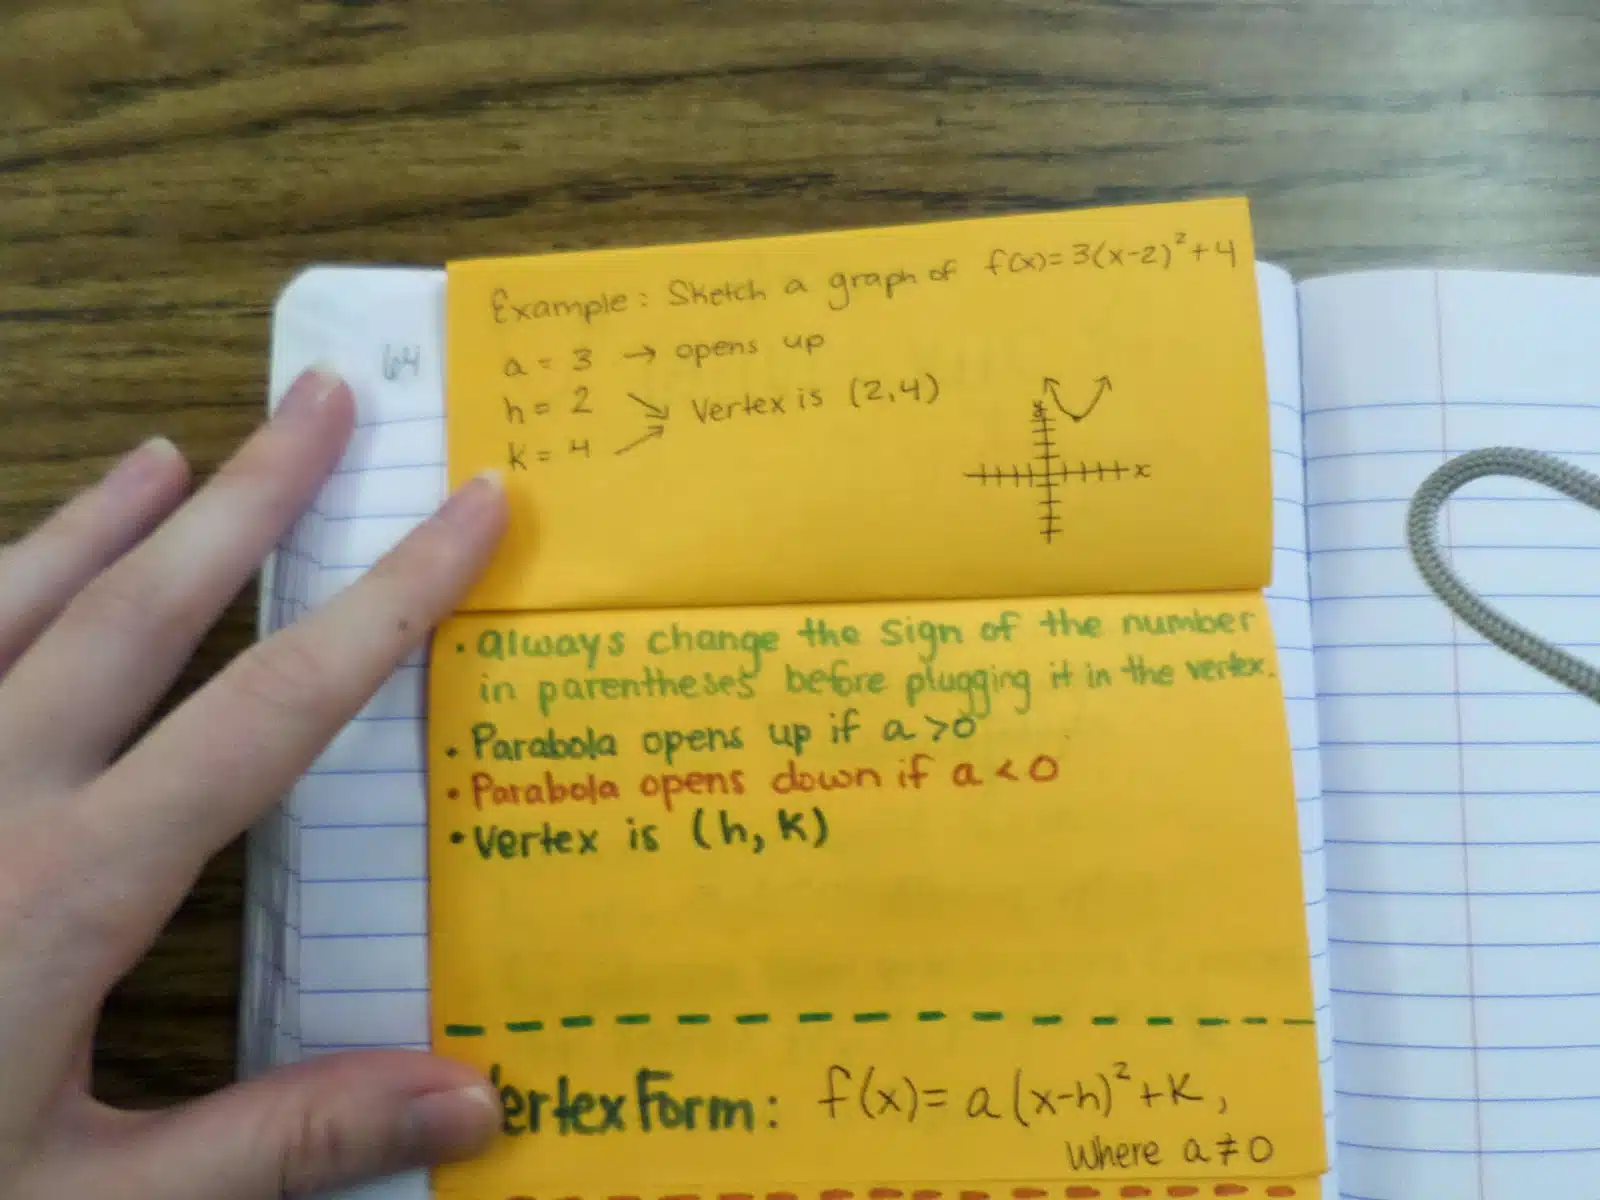 64
Example: Sketch a graph of f(x)=3(x-2)²+4
a = 3 → opens up
h = 2
Vertex is (2,4)
k = 4
y
x
• Always change the sign of the number
in parentheses before plugging it in the vertex.
• Parabola opens up if a >0
• Parabola opens down if a < 0
• Vertex is (h, k)
ertex Form: f(x)= a(x-h)²+k,
Where a ≠ 0